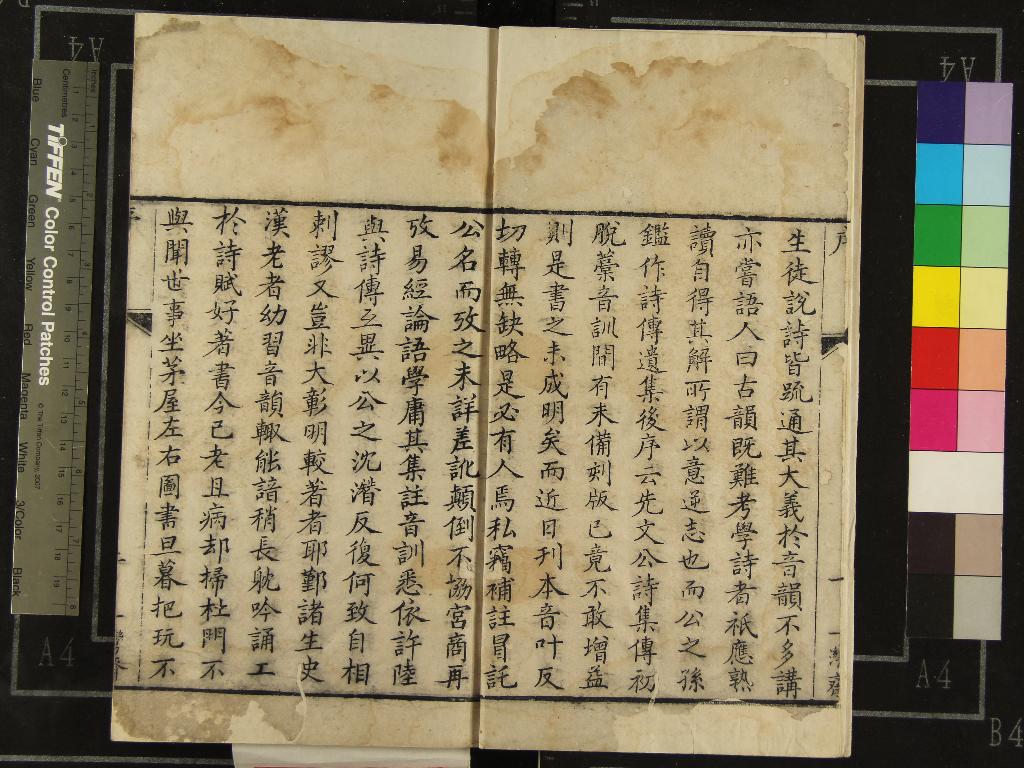 序
生徒說詩皆疏通其大義於音韻不多講
亦嘗語人曰古韻旣難考學詩者祇應熟
讀自得其解所謂以意逆志也而公之孫
鑑作詩傳遺集後序云先文公詩集傳初
脫藁音訓間有未備刻版已竟不敢增益
則是書之未成明矣而近日刊本音叶反
切轉無缺略是必有人焉私竊補註冒託
公名而攷之未詳差訛顛倒不協宮商再
攷易經論語學庸其集註音訓悉依許陸
與詩傳互異以公之沈潛反復何致自相
刺謬又豈非大彰明較著者耶鄞諸生史
漢老者幼習音韻輒能諳稍長躭吟誦工
於詩賦好著書今已老且病却掃杜門不
與聞世事坐茅屋左右圖書旦暮把玩不
一
二
TIFFEN Color Control Patches
© The Tiffen Company, 2007
Inches
Centimetres
Blue
Cyan
Green
Yellow
Red
Magenta
White
3/Color
Black
A4
A4
A4
A4
B4